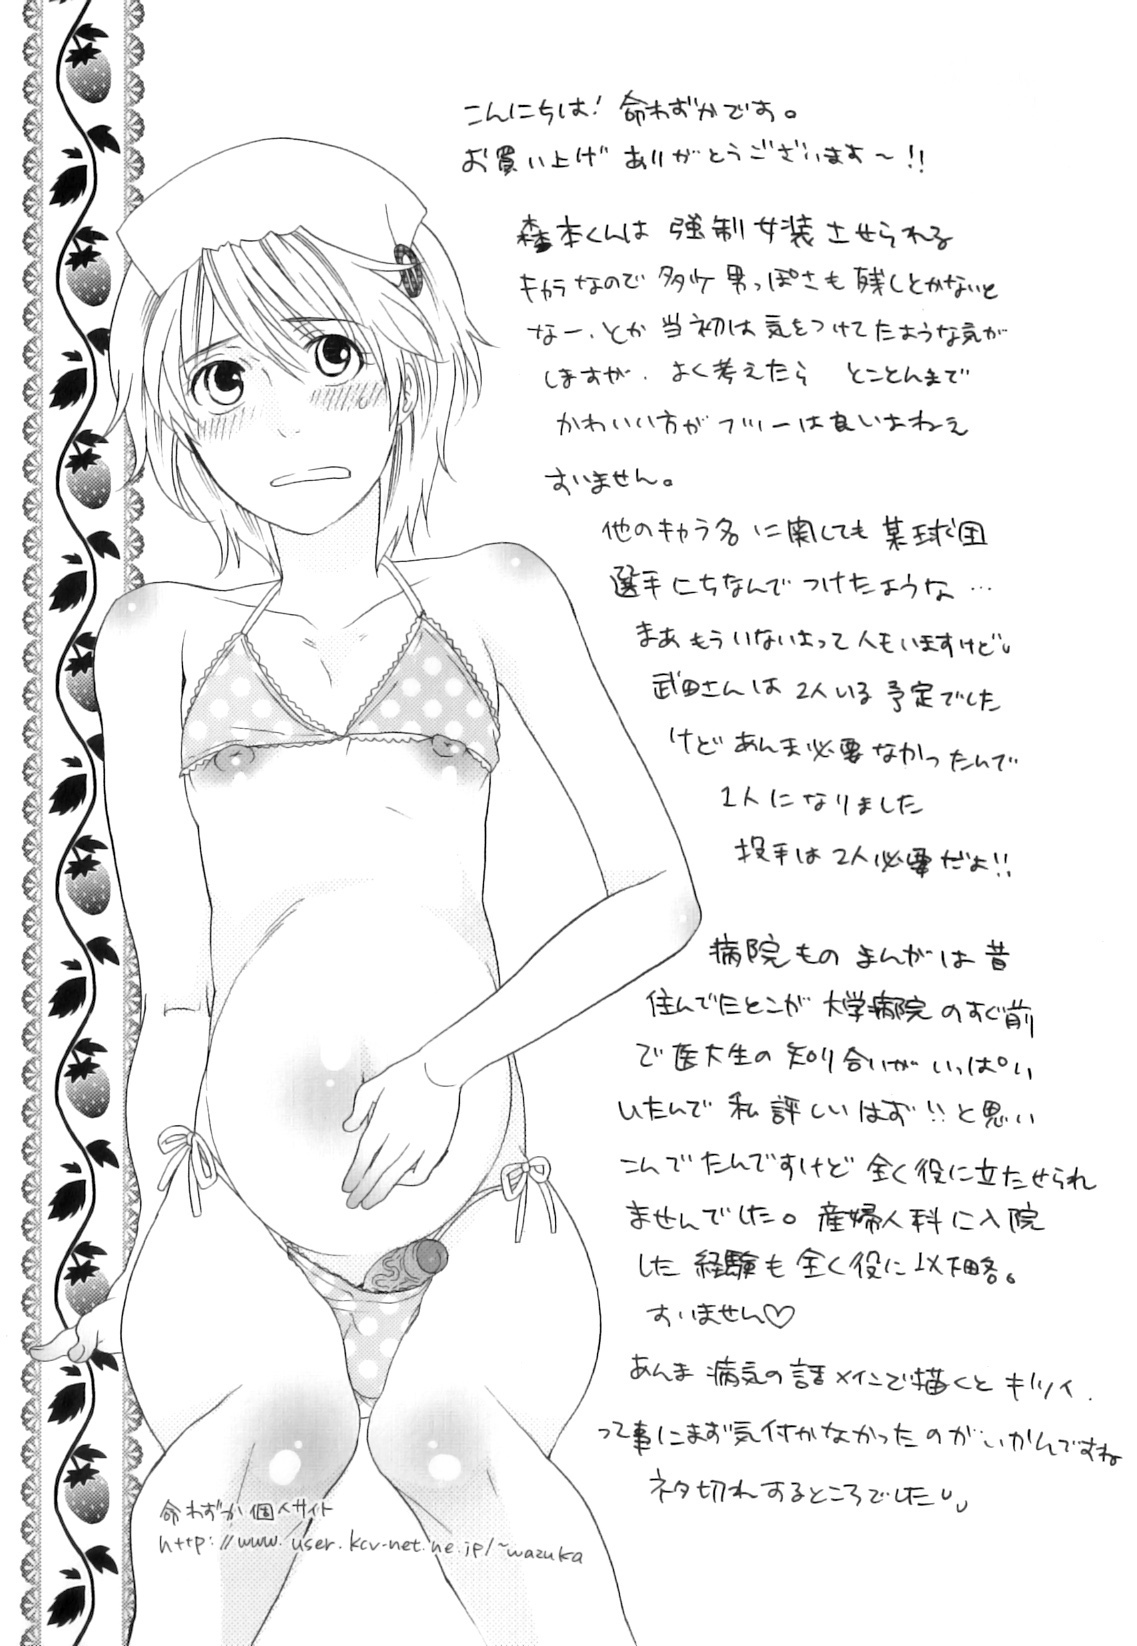 こんにちは!命わずかです。
お買い上げありがとうございます〜!!
森本くんは強制女装させられる
キャラなので多少男っぽさも残しとかないと
なー、とか当初は気をつけてたような気が
しますが、よく考えたらとことんまで
かわいい方がフツーは良いよねえ
すいません。
他のキャラ名に関しても某球団
選手にちなんでつけたような…
まあもういないよって人もいますけど
武田さんは2人いる予定でした
けどあんま必要なかったんで
1人になりました
投手は2人必要だよ!!
病院ものまんがは昔
住んでたとこが大学病院のすぐ前
で医大生の知り合いがいっぱい
いたんで私詳しいはず!!と思い
こんでたんですけど全く役に立たせられ
ませんでした。産婦人科に入院
した経験も全く役に以下略。
すいません♡
あんま病気の話メインで描くとキツイ、
って事にまず気付かなかったのがいかんですね
ネタ切れするところでした
命わずか個人サイト
http://www.user.kcv-net.ne.jp/~wazuka